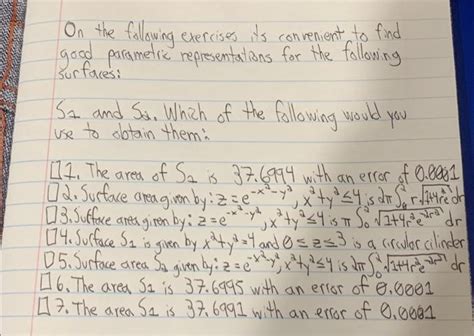 On the following exercises its convenient to find
good parametric representations for the following
surfaces:
S1 and S2. Which of the following would you
use to obtain them:
□1. The area of S2 is 37.6994 with an error of 0.0001
□2. Surface area given by: z=e^-x²-y², x²+y²≤4 is 2π∫₀² r√1+4r²e^-2r² dr
□3. Surface area given by: z=e^-x²-y², x²+y²≤4 is π∫₀²√1+4r²e^-2r² dr
□4. Surface S1 is given by x²+y²=4 and 0≤z≤3 is a circular cilinder
□5. Surface area S2 given by: z=e^-x²-y², x²+y²≤4 is 2π∫₀²√1+4r²e^-2r² dr
□6. The area S1 is 37.6995 with an error of 0.0001
□7. The area S1 is 37.6991 with an error of 0.0001